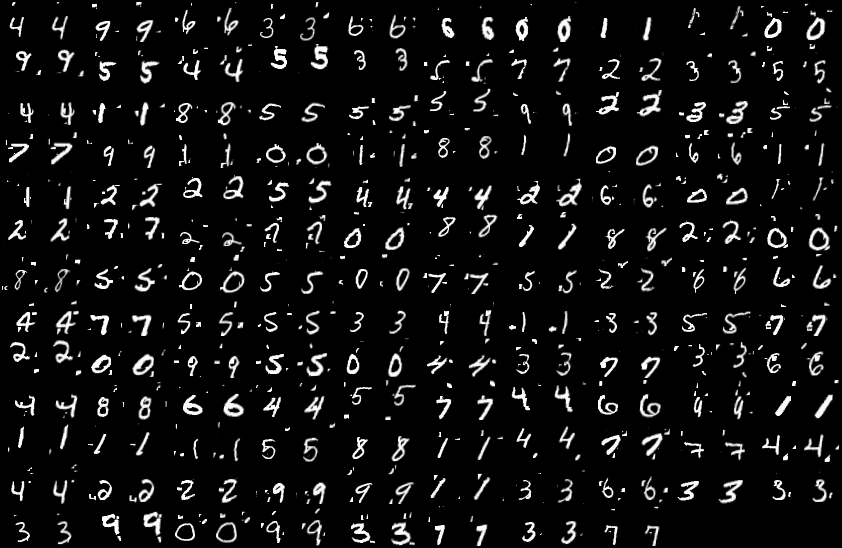 4 4 9 9 6 6 3 3 6 6 6 6 0 0 1 1 1 1 0 0
9 9 5 5 4 4 5 5 3 3 5 5 7 7 2 2 3 3 5 5
4 4 1 1 8 8 5 5 5 5 5 5 9 9 2 2 3 3 5 5
7 7 9 9 1 1 0 0 1 1 8 8 1 1 0 0 6 6 1 1
1 1 2 2 2 2 5 5 4 4 4 4 2 2 6 6 0 0 1 1
2 2 7 7 2 2 7 7 0 0 8 8 1 1 8 8 2 2 0 0
8 8 5 5 0 0 5 5 0 0 7 7 5 5 2 2 6 6 6 6
4 4 7 7 5 5 5 5 3 3 4 4 1 1 3 3 5 5 7 7
2 2 0 0 9 9 5 5 0 0 4 4 3 3 7 7 3 3 6 6
4 4 8 8 6 6 4 4 5 5 7 7 4 4 6 6 9 9 1 1
1 1 1 1 1 1 5 5 8 8 1 1 4 4 7 7 7 7 4 4
4 4 2 2 2 2 9 9 9 9 1 1 3 3 6 6 3 3 3 3
3 3 9 9 0 0 9 9 3 3 7 7 3 3 7 7